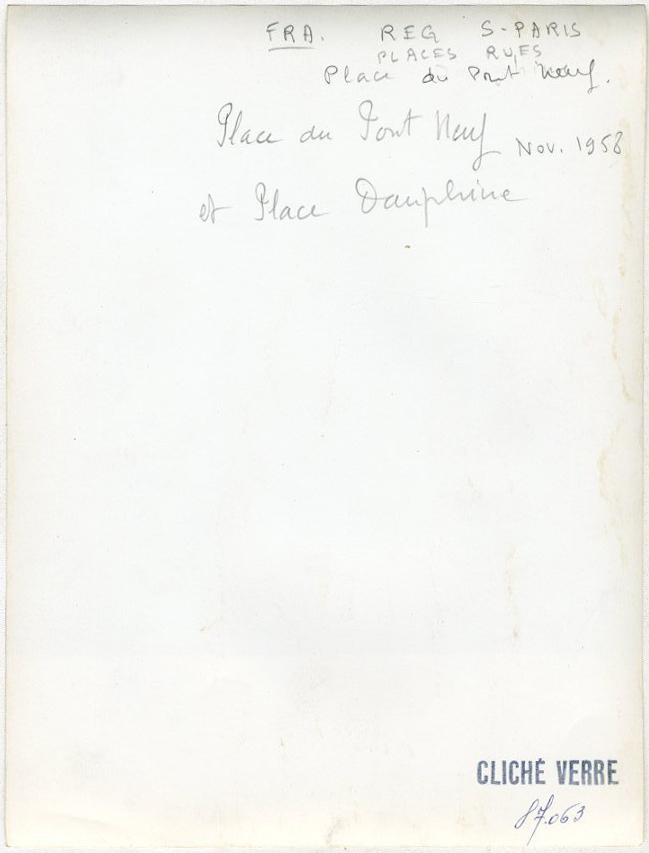 FRA. REG S-PARIS
PLACES RUES
Place du Pont Neuf.
Place du Pont Neuf Nov. 1958
et Place Dauphine
CLICHÉ VERRE
87.063